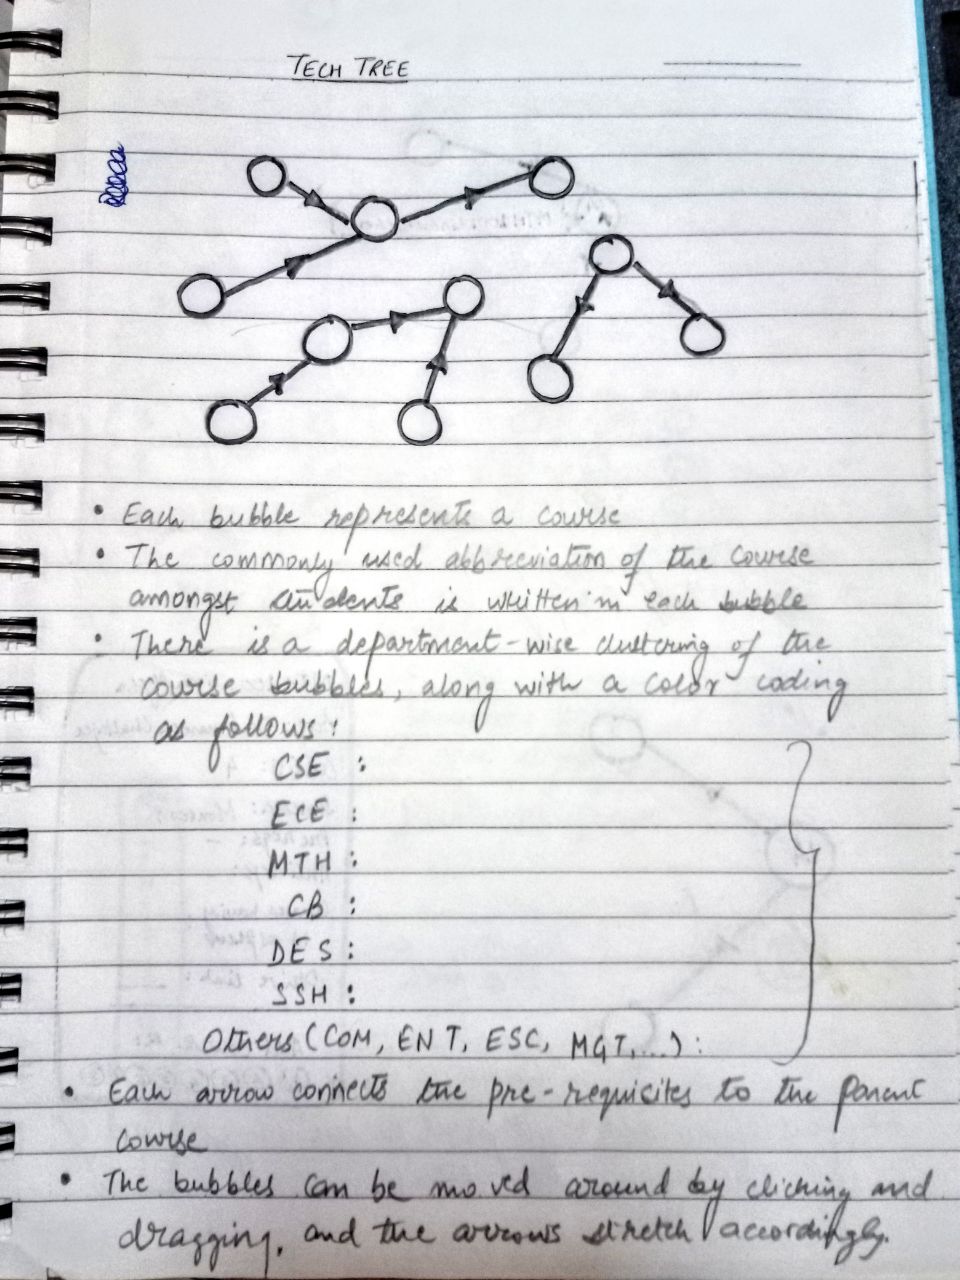 TECH TREE
• Each bubble represents a course
• The commonly used abbreviation of the course
amongst students is written in each bubble
• There is a department-wise clustering of the
course bubbles, along with a color coding
as follows:
CSE :
ECE :
MTH :
CB :
DES :
SSH :
Others (COM, ENT, ESC, MGT,...) :
• Each arrow connects the pre-requicites to the parent
course
• The bubbles can be moved around by clicking and
dragging, and the arrows stretch accordingly.